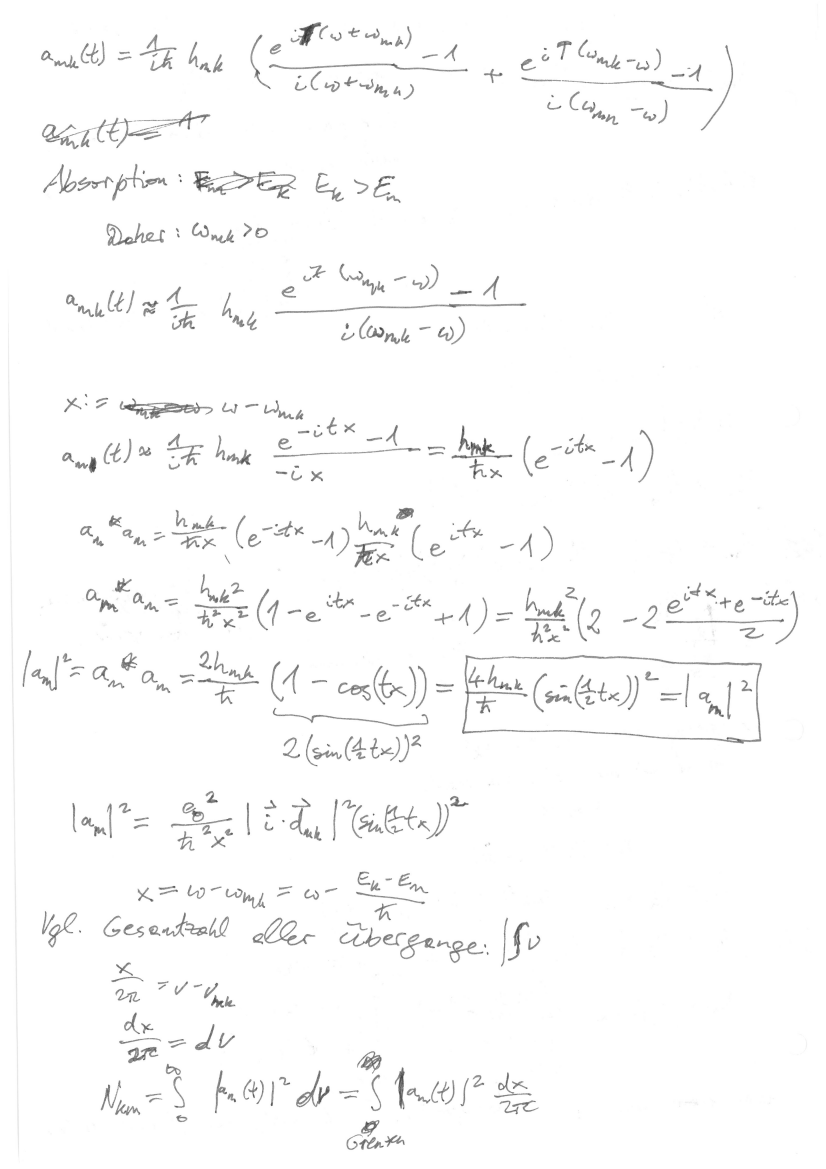 a_mk(t) = 1/(iħ) h_mk ( (e^{iT(ω+ω_mk)} − 1)/(i(ω+ω_mk)) + (e^{iT(ω_mk−ω)} − 1)/(i(ω_mn−ω)) )
a_mk(t) =
Absorption: E_m > E_k E_k > E_m
Daher: ω_mk > 0
a_mk(t) ≈ 1/(iħ) h_mk (e^{it(ω_mk−ω)} − 1)/(i(ω_mk−ω))
x := ω − ω_mk
a_m(t) ≈ 1/(iħ) h_mk (e^{−itx} − 1)/(−ix) = h_mk/(ħx) (e^{−itx} − 1)
a_m* a_m = h_mk/(ħx) (e^{−itx} − 1) h_mk/(ħx) (e^{itx} − 1)
a_m* a_m = h_mk²/(ħ²x²) (1 − e^{itx} − e^{−itx} + 1) = h_mk²/(ħ²x²) (2 − 2 (e^{itx} + e^{−itx})/2)
|a_m|² = a_m* a_m = 2h_mk/ħ (1 − cos(tx)) = 4h_mk/ħ (sin(½tx))² = |a_m|²
2(sin(½tx))²
|a_m|² = e_0²/(ħ²x²) |i⃗·d⃗_mk|² (sin(½tx))²
x = ω − ω_mk = ω − (E_k − E_m)/ħ
Vgl. Gesamtzahl aller übergange: |∫ν
x/2π = ν − ν_mk
dx/2π = dν
N_km = ∫_0^∞ |a_m(t)|² dν = ∫ |a_m(t)|² dx/2π
Grenzen